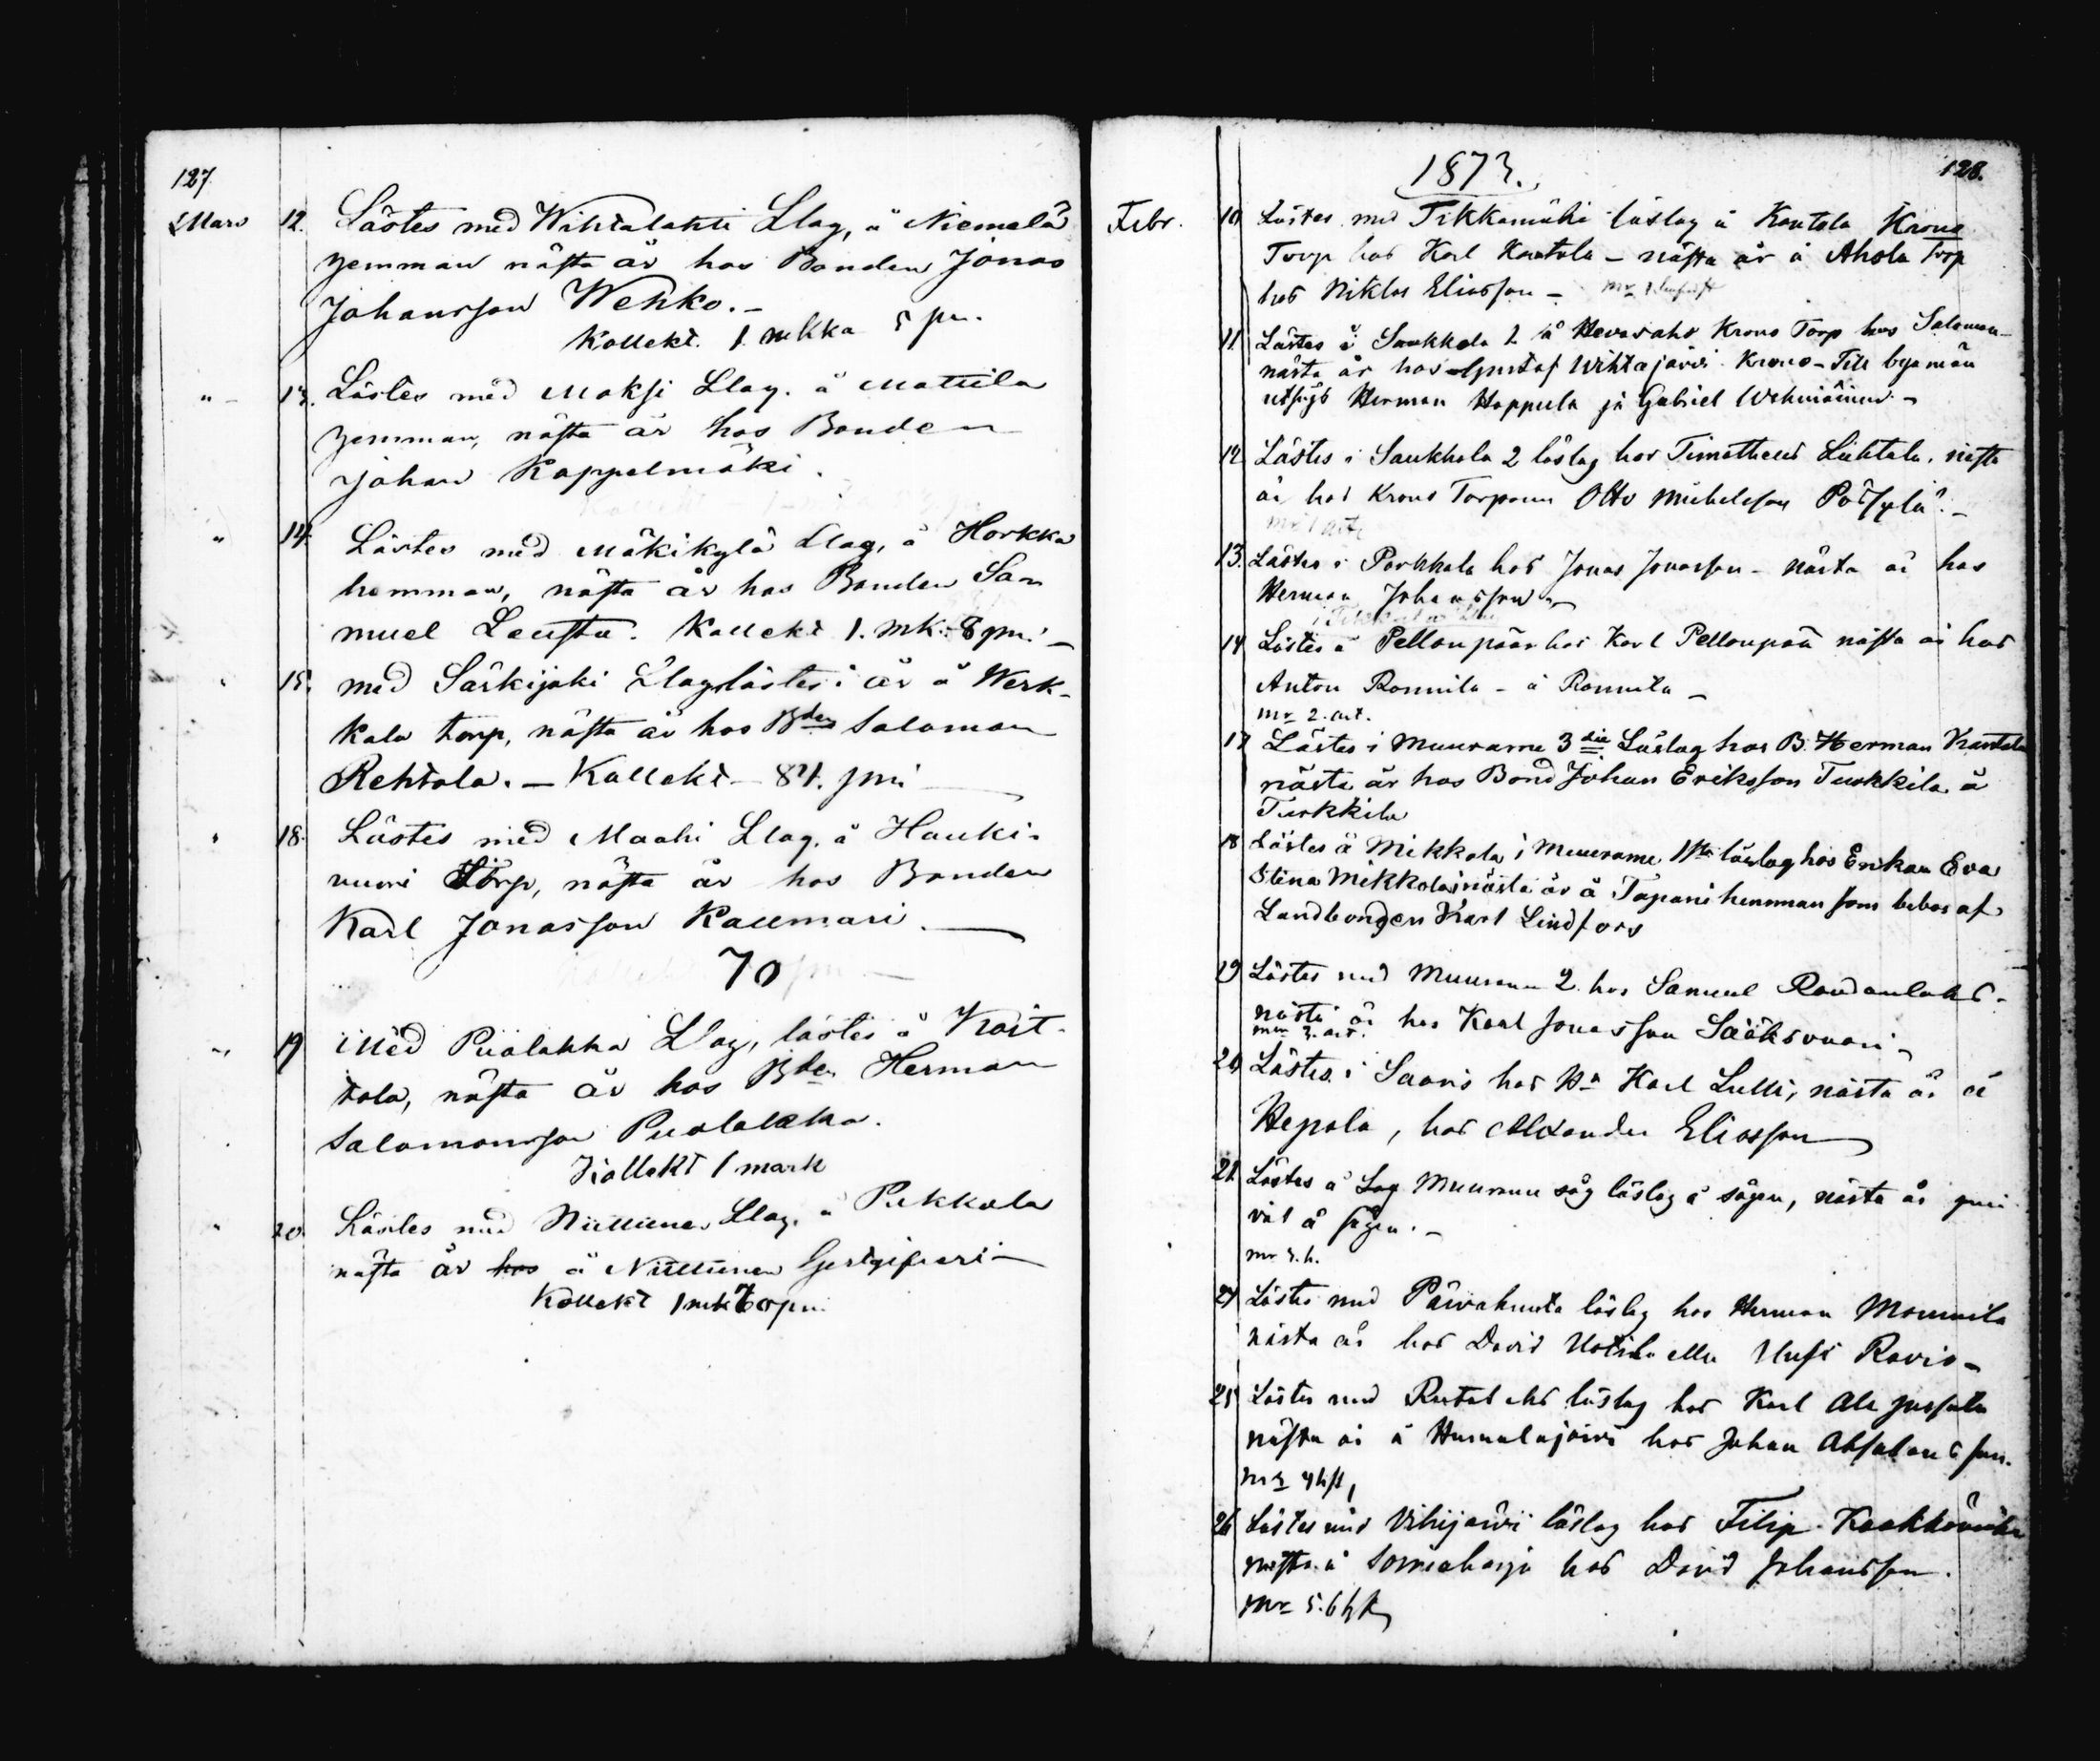 127.
Mars 12. Lästes med Wihtalahti Llag, å Niemelä
hemman nästa år hos Bonden Jonas
Johansson Wehko. –
Kollekt. 1 mkka 5 pn.
" – 13. Lästes med Maksi Llag. å Mattila
hemman, nästa år hos Bonden
Johan Kappelmäki.
" 14. Lästes med Mäkikylä Llag, å Horkka
hemman, nästa år hos Bonden Sa-
muel Leustu. Kollekt 1. mk: 8 pni –
" 15. med Särkijoki Llag lästes i år å Werk-
kala torp, nästa år hos Bden Salomon
Rehtola. – Kollekt – 84. pni
" 18. Lästes med Maahi Llag, å Hauki-
vuori Torp, nästa år hos Bonden
Karl Jonasson Kaumari.
70 pn
" 19 Med Puolakka Llag, lästes å Koit-
tola, nästa år hos Bden Herman
Salomonsson Puolakka.
Kollekt 1 mark
" 20. Lästes med Niittunen Llag. å Pukkola
nästa år hos å Niittunen Gestgifveri –
Kollekt 1 mk 70 pn.
1873. 128.
Febr. 10 Lästes med Tikkamäki läslag å Kantola Krono
Torp hos Karl Kantola – nästa år å Ahola Torp
hos Niklas Eliasson –
11. Lästes i Saukkola 2 å Hevosaho Krono Torp hos Salomon –
nästa år hos Gustaf Wihtajärvi Krono – Till byamän
utsågs Herman Hoppula ja Gabriel Wehniäinen –
12. Lästes i Saukkola 2 läslag hos Timotheus Lühtala, nästa
år hos Krono Torparen Otto Michelsson Pörsylä. –
mr 1 art
13. Lästes i Porkkala hos Jonas Jonasson – nästa år hos
Herman Johansson –
14 Lästes å Pellonpää hos Karl Pellonpää nästa år hos
Anton Ronnila – å Ronnila –
mr 2. art.
17 Lästes i Muurame 3die Läslag hos B. Herman Kantola
nästa år hos Bond Johan Eriksson Turkkila å
Turkkila
18 Lästes å Mikkola i Muurame 1sta läslag hos Enkan Eva
Stina Mikkola, nästa år å Tapani hemman som bebos af
Landbonden Karl Lindfors
19 Lästes med Muurame 2. hos Samuel Raudanlaht –
nästa år hos Karl Jonasson Sääksvuori –
mr 3. art.
20 Lästes i Saaris hos Bn Karl Lulli, nästa år å
Hepola, hos Alexander Eliasson
21 Lästes å Lag Muurame såg läslag å sågen, nästa år
väl å sågen. –
mr 3. h.
24 Lästes med Päivakunta läslag hos Herman Mounila
nästa år hos David Uotila eller Uusi Ravio –
25 Lästes med Rutalaht läslag hos Karl Ala Jussila
nästa år å Humalajärvi hos Johan Absalonsson.
mr 4 hft,
26 Lästes med Vihijärvi läslag hos Filip Kaakkomäki
nästa å Somerharju hos David Johansson.
mr 5. 6 hft